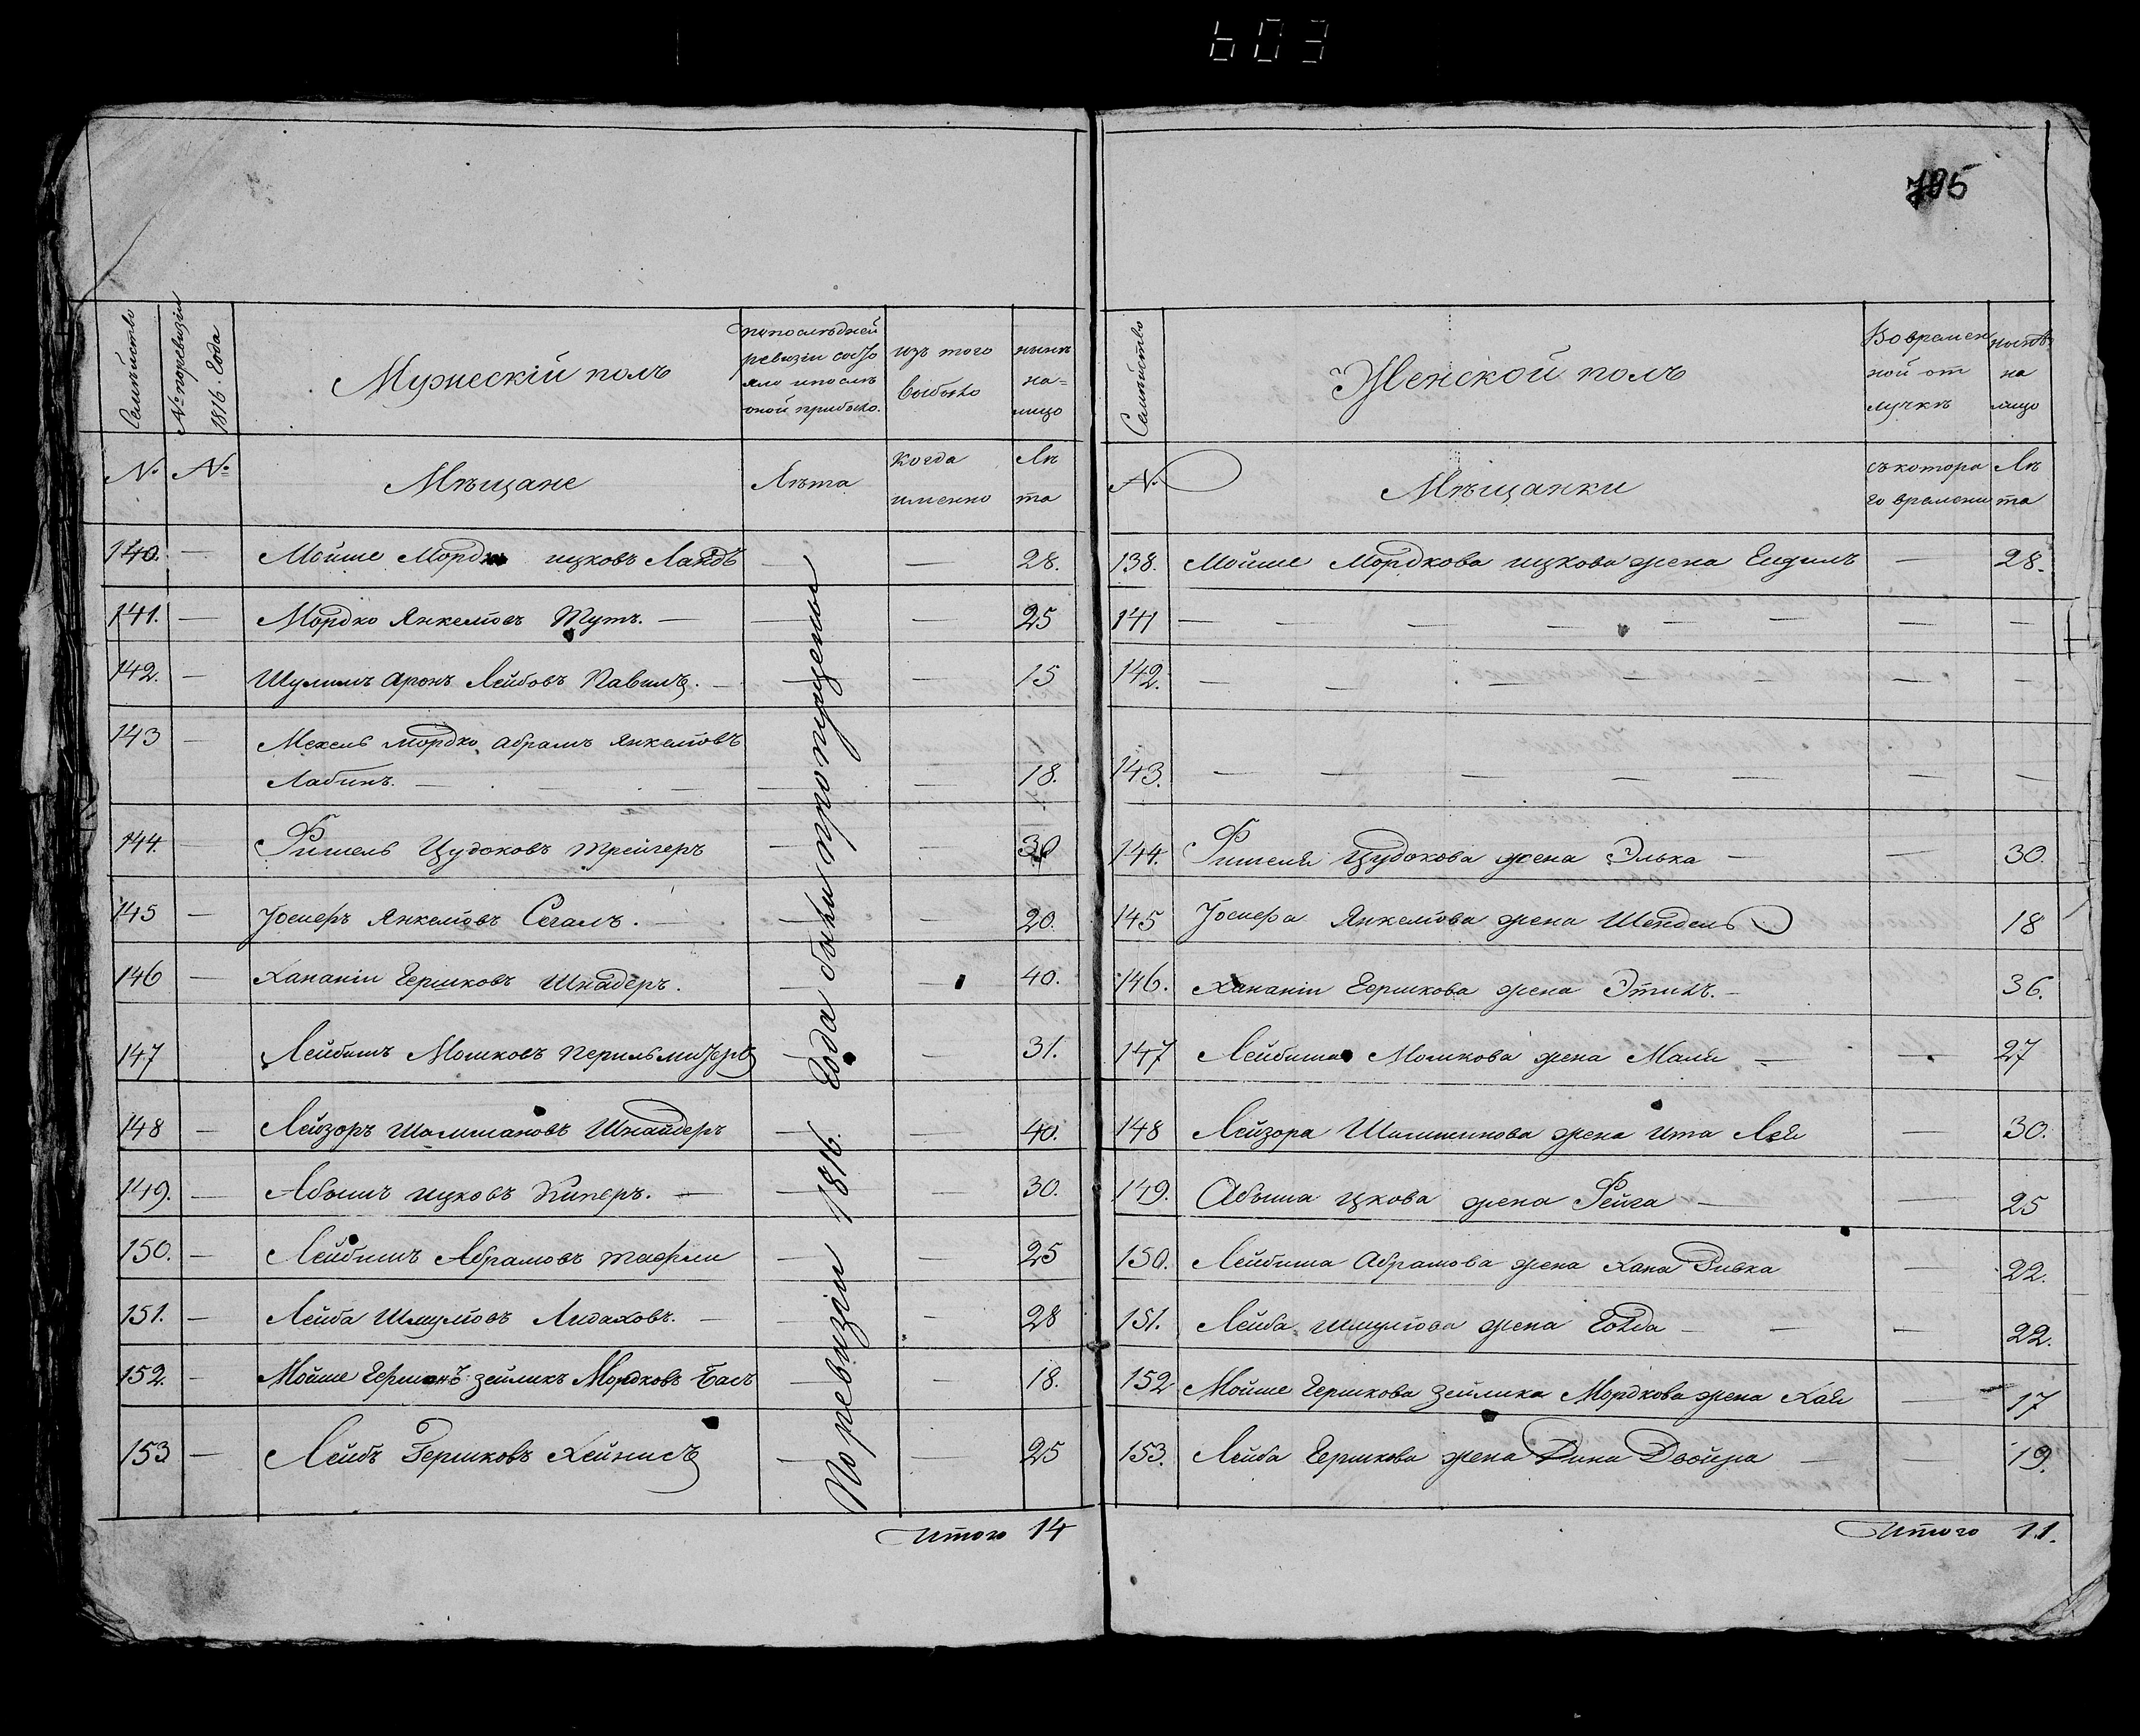 603
705
Семейство
№ поревизіи
1816. Года
Мужескій полъ
попоследней
ревизіи состо
яло ипослѣ
оной прибыло.
изъ того
выбыло
нынѣ
на=
лицо
№ №
Мѣщане
Лѣта
когда
именно
Лѣ
та
140. — Мойше Мордко ицковъ Ландъ — — 28.
141. — Мордко Янкелiовъ Тутъ. — — — 25
142. — Шулимъ Аронъ Лейбовъ Павилъ. — — 15
143 — Мехель мордко Абрамъ Янкелiовъ
Лабинъ. — — — — 18.
144. — Фишель Цудоковъ Трейгеръ — — 30
145 — Иосиеръ Янкелiовъ Сегалъ. — — — 20.
146 — Ханании Гершковъ Шнадеръ. — — 40.
147 Лейбишъ Мошковъ — — 31.
148 — Лейзоръ Шлиомановъ Шнайдеръ — — 40.
149. — Абышъ ицковъ Киперъ. — — — 30.
150. — Лейбишъ Абрамовъ — — 25
151. — Лейба Шмулiовъ Лидаховъ. — — — 28
152. — Мойше Гершонъ зейликъ Мордковъ Басъ — — 18.
153 — Лейбъ Гершковъ Хейнисъ — — 25
По ревизіи 1816. Года были пропущены
Итого 14
Семейство
Женской полъ
Вовремен
ной от
лучкѣ
нынѣ
на
лицо
№
Мѣщанки
съкотора
го времени
Лѣ
та
138. Мойше Мордкова ицкова жена Ендиль — 28.
141 — — — — — — — —
142. — — — — — — — —
143. — — — — — — —
144. Фишеля Цудокова жена Элька — — 30.
145 Иосиера Янкелiова жена Шендель 18
146. Ханании Гершкова жена Этиль. — 36.
147 Лейбиша Мошкова жена Маля — — 27
148 Лейзора Шлиоминова жена Ита Лея — 30.
149. Абыша Ицкова жена Фейга — — 25
150. Лейбиша Абрамова жена Хана Ривка — 22.
151. Лейба Шмулiова жена Голда — — — 22.
152 Мойше Гершкова зейлика Мордкова жена Хая — 17
153. Лейба Гершкова жена Дина Двойра — — 19.
Итого 11.